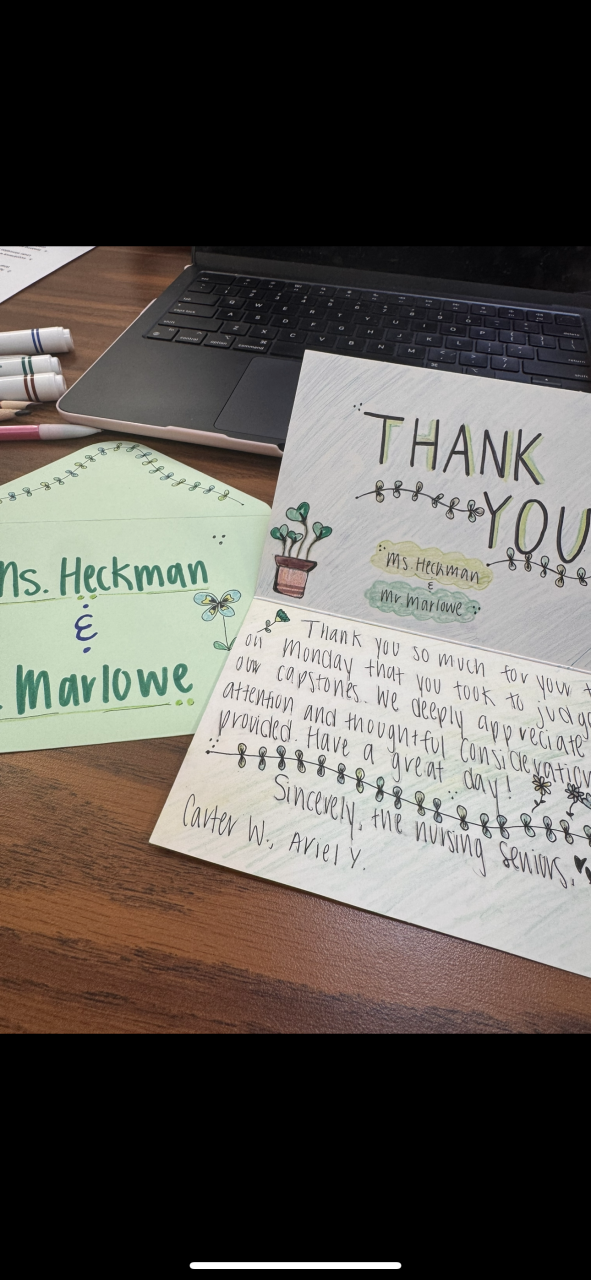 Ms. Heckman
&
Marlowe
THANK
YOU
Ms Heckman
&
Mr Marlowe
Thank you so much for your
on monday that you took to judge
our capstones. We deeply appreciate
attention and thoughtful consideration
provided. Have a great day!
Sincerely, the nursing seniors.
Carter W., Ariel Y.
control
option
command
command
option